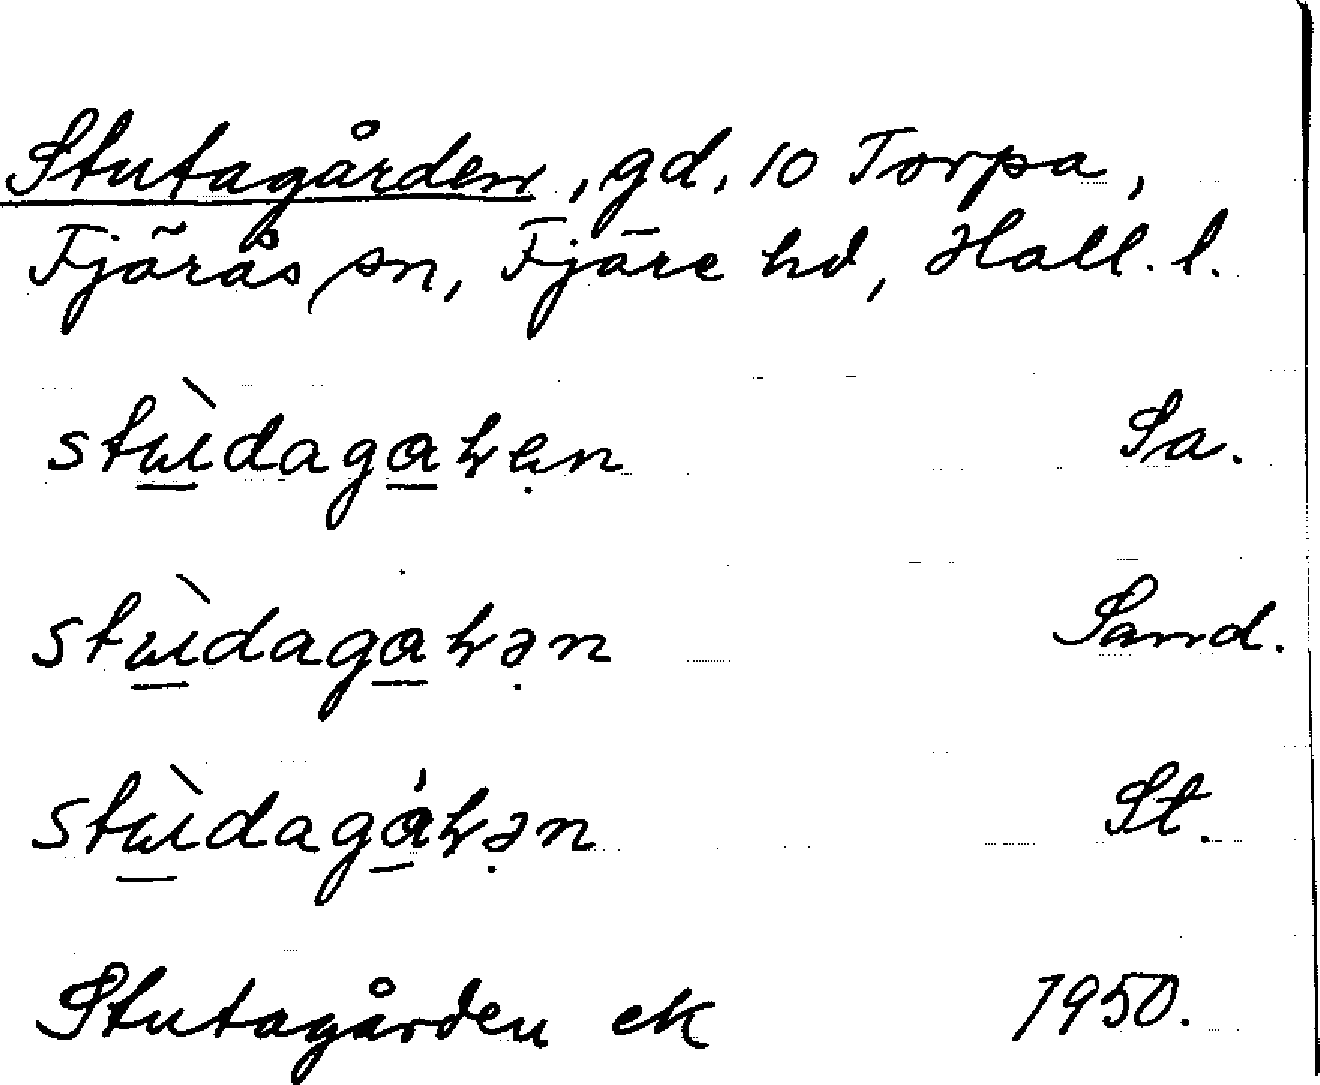 Stutagården, gd, 10 Torpa,
Fjärås sn, Fjäre hd, Hall. l.
stɯ̀dagaꝛen Sa.
stɯ̀dagaꝛən Sand.
stɯ̀dagáꝛən St.
Stutagården ek 1950.